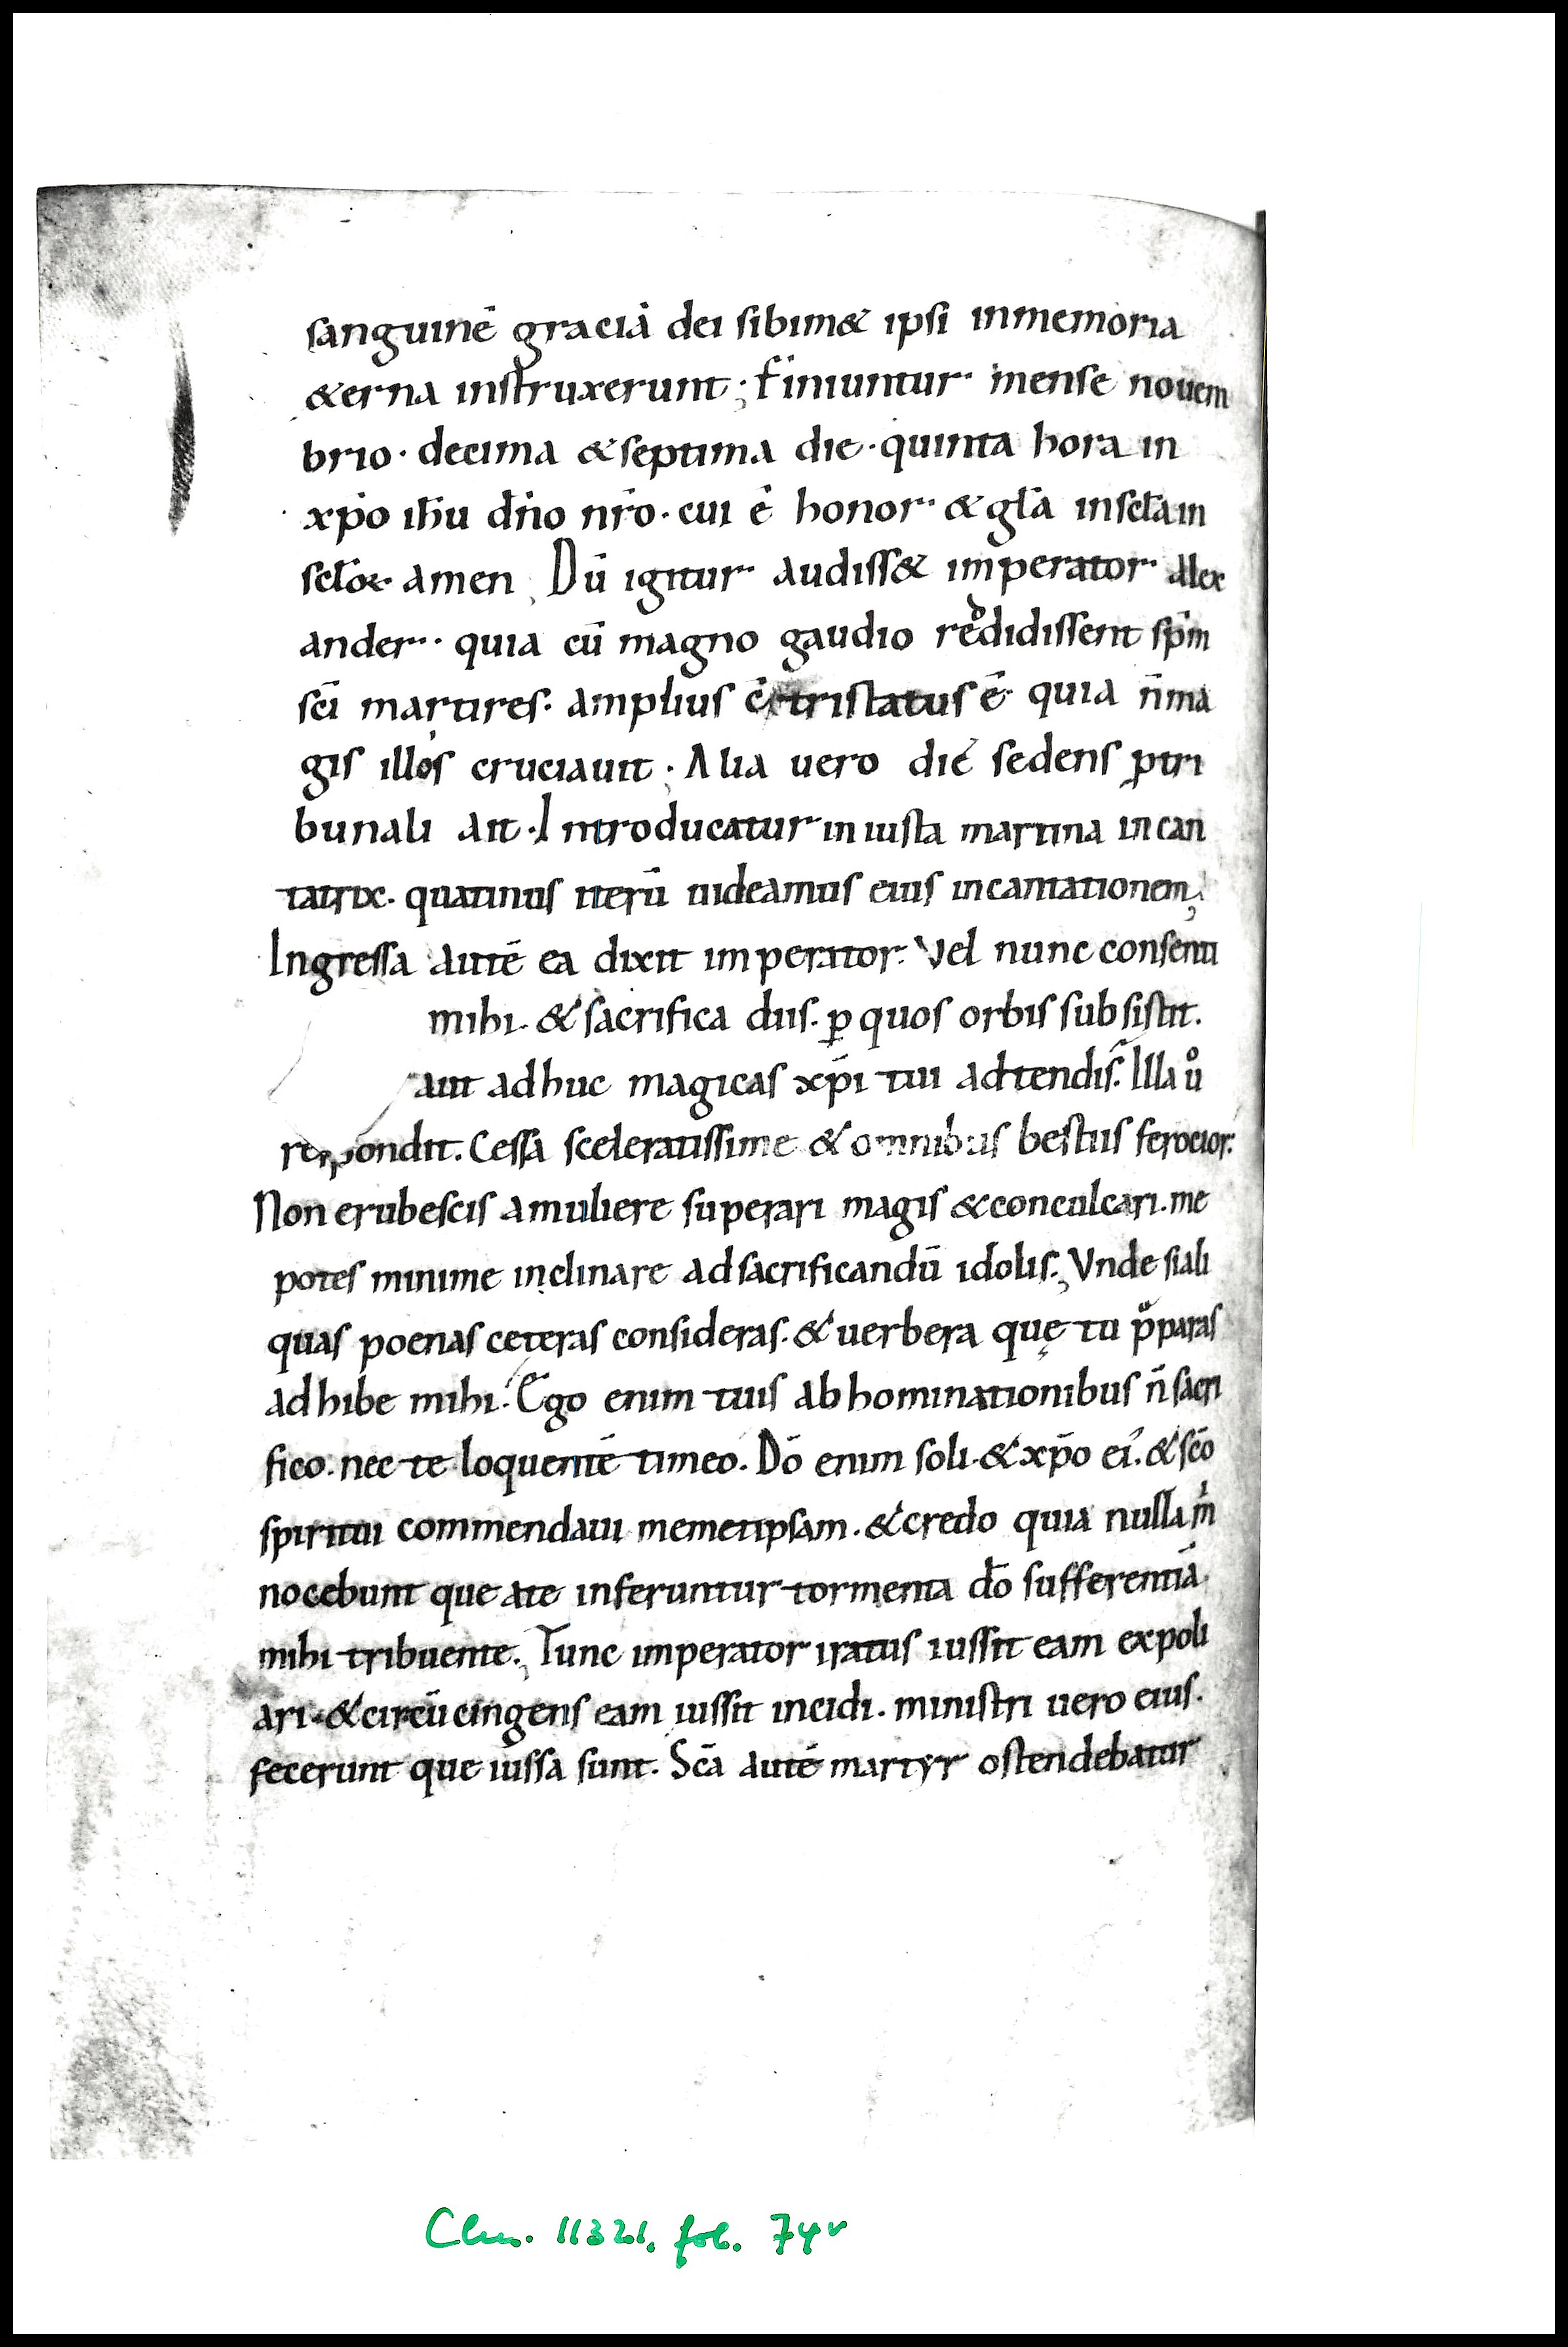 sanguinē graciā dei sibim& ipsi inmemoria
&erna instruxerunt; finiuntur mense nouem
brio· decima &septima die· quinta hora in
xp̄o ih̄u dn̄o nr̄o· cui ē honor· &gl̄a insc̄la in
sc̄loꝝ amen; Dū igitur audiss& imperator alex
ander· quia cū magno gaudio reddidissent sp̄m
sc̄i martires· amplius tristatus ē quia n̄ ma
gis illos cruciauit; Alia uero die sedens ꝓ tri
bunali ait· Introducatur iniusta martina incan
tatrix· quatinus iterū uideamus eius incantationem;
Ingressa autē ea dixit imperator· Vel nunc consenti
mihi· & sacrifica diis· ꝑ quos orbis subsistit.
aut adhuc magicas xp̄i tui adtendis. Illa uͦ
respondit. Cessa sceleratissime & omnibus bestiis ferocior·
Non erubescis amuliere superari magis &conculcari· me
potes minime inclinare adsacrificandū idolis; Vnde siali
quas poenas ceteras consideras· & uerbera quę tu p̄paras
adhibe mihi· Ego enim tuis abhominationibus n̄ sacri
fico· nec te loquentē timeo. Dō enim soli· & xp̄o ei'· & sc̄o
spiritui commendaui memetipsam· &credo quia nulla m̄
nocebunt que ate inferuntur tormenta dō sufferentiā
mihi tribuente; Tunc imperator iratus iussit eam expoli
ari· &circūcingens eam iussit incidi· ministri uero eius·
fecerunt que iussa sunt· Sc̄a autē martyr ostendebatur
Clm. 11321, fol. 74v